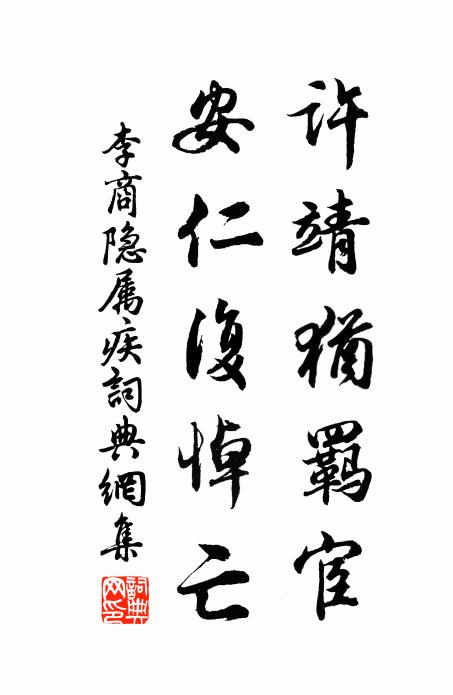 許靖猶羈宦
安仁復悼亡
李商隐属疾詞典網集
詞典网印